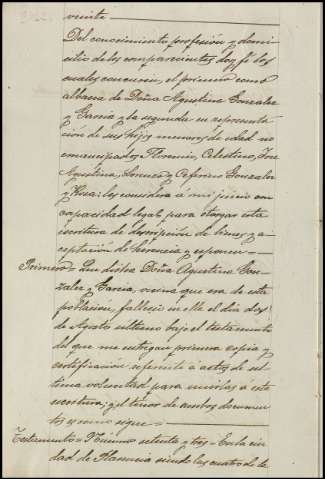 veinte
Del conocimiento profesión y domi-
cilio de los comparecientes doy fé los
cuales concurren, el primero como
albacea de Doña Agustina Gonzalez
y Garcia y la segunda en representa-
ción de sus hijos menores de edad no
emancipados Florencio, Celestino, Jose
Agustina, Lorenza y Ceferino Gonzalez
y Rosa: les considero á mi juicio con
capacidad legal para otorgar esta
escritura de descripción de bienes y a-
ceptación de herencia y exponen
Primero = Que dicha Doña Agustina Gon-
zalez y Garcia, vecina que era de esta
población, falleció en ella el dia dos
de Agosto ultimo bajo el testamento
del que me entregan primera copia y
certificación referente á actos de ul-
tima voluntad para unirlas a esta
escritura; y el tenor de ambos documen-
tos es como sigue =
Testamento = Número setenta y tres = En la ciu-
dad de Plasencia siendo las cuatro de la